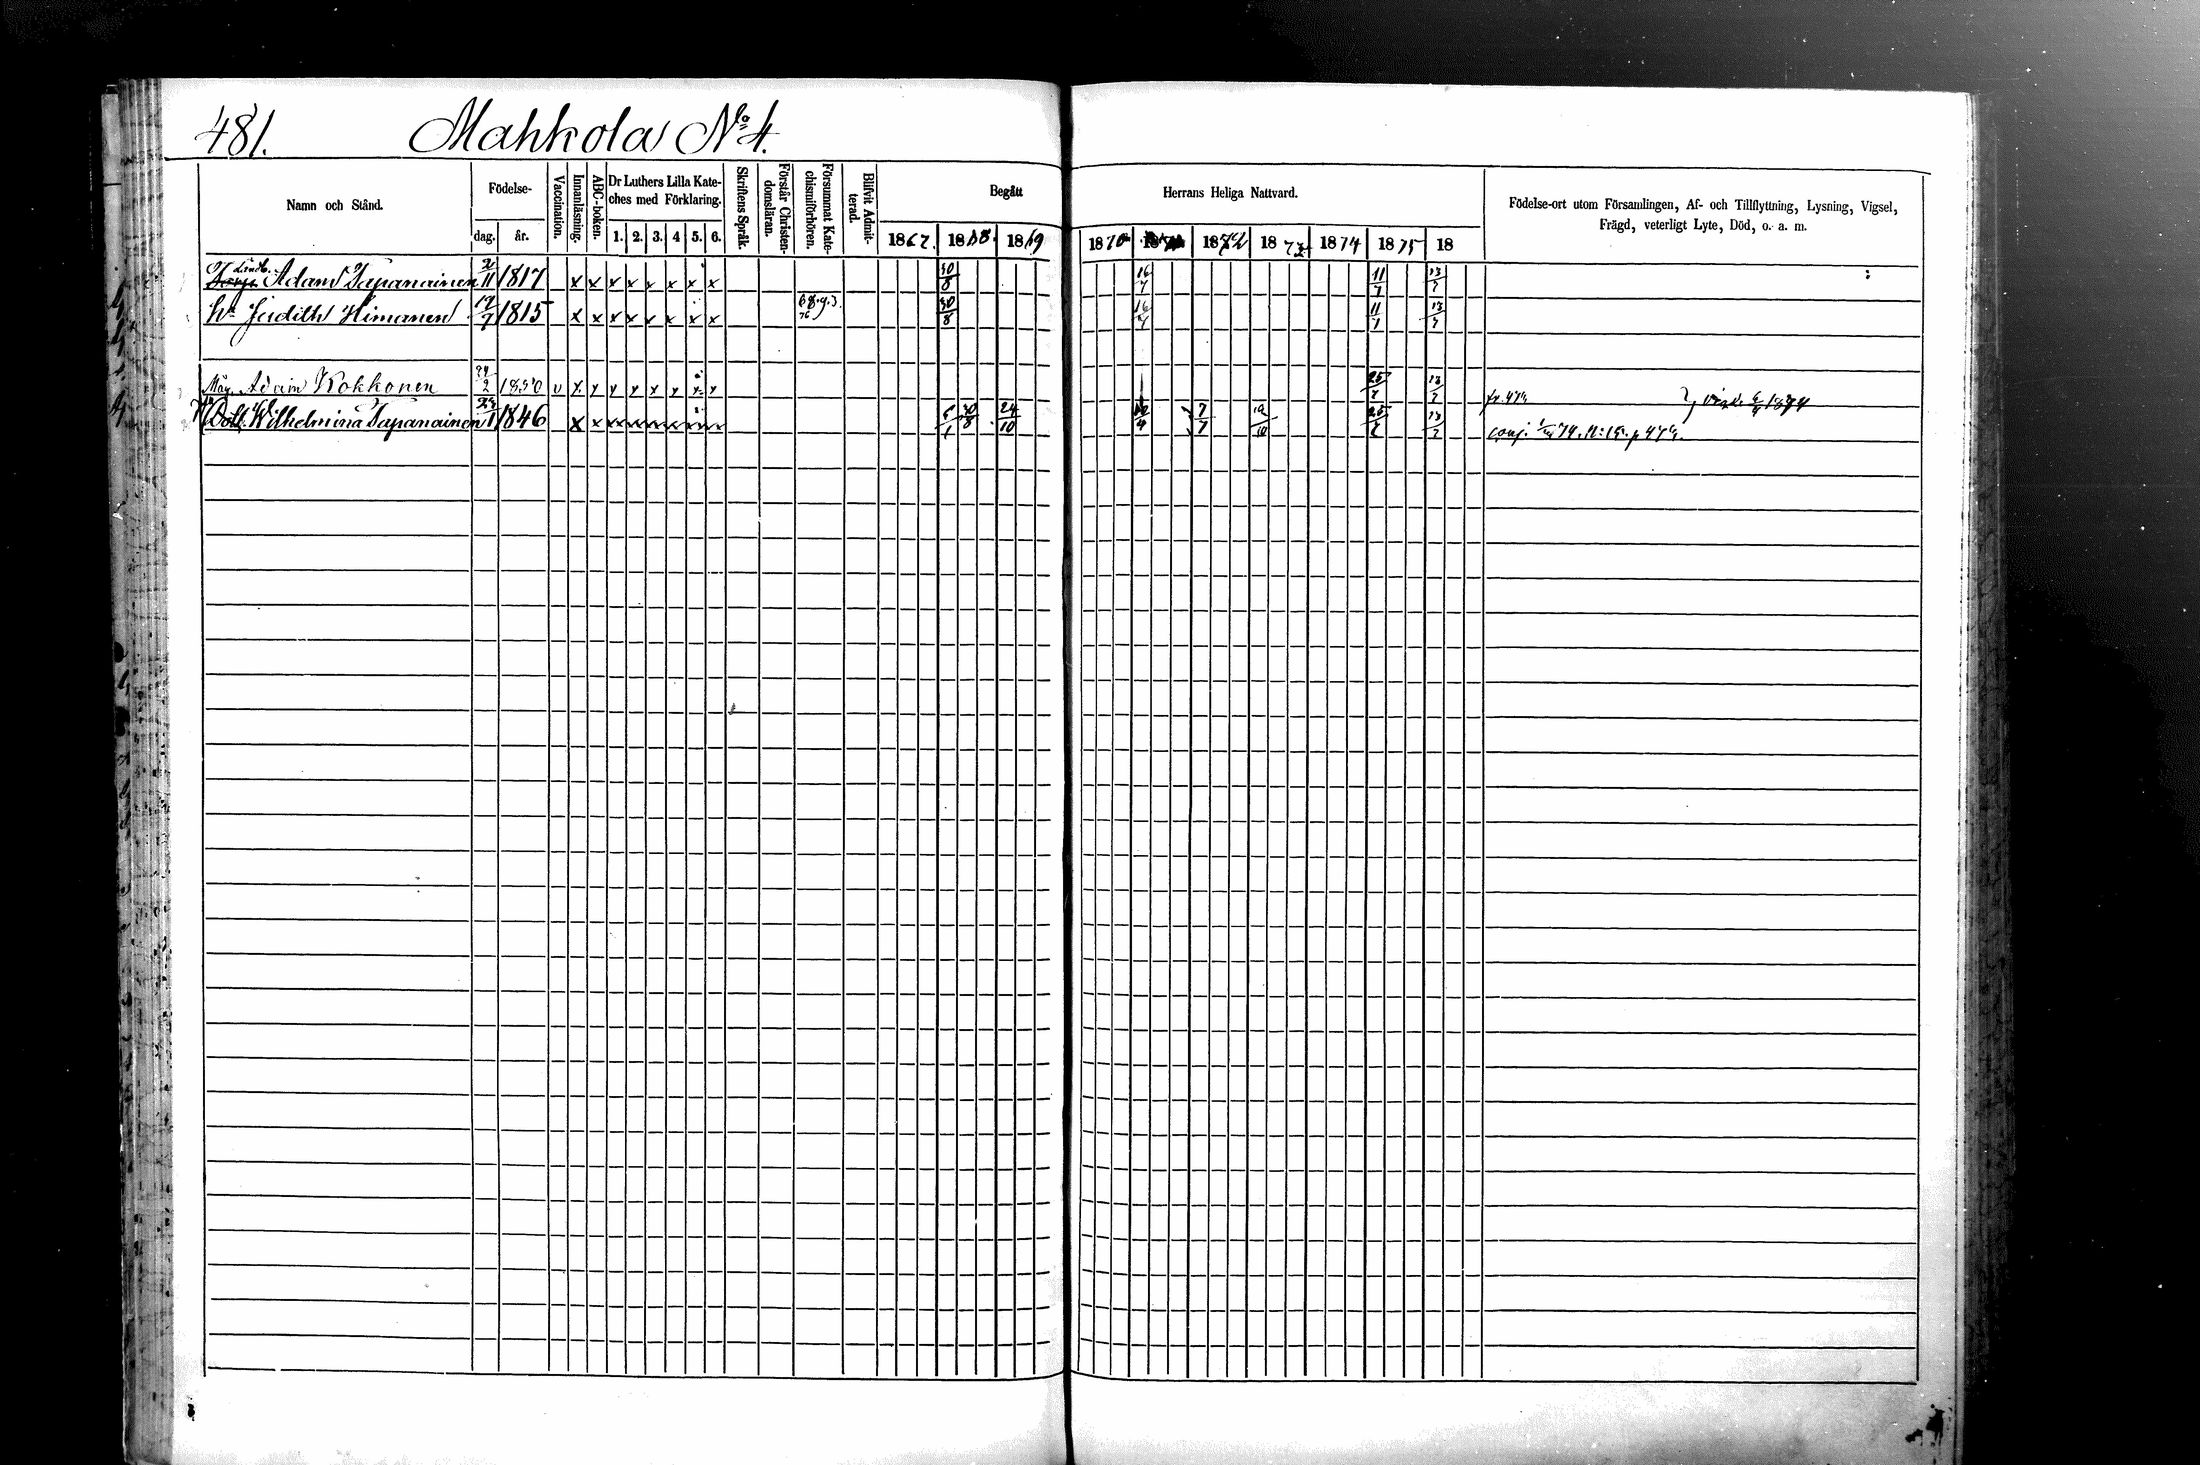 481. Mahkola No 4.
Namn och Stånd.
Födelse-
dag. år.
Vaccination.
Innanläsning.
ABC-boken.
Dr Luthers Lilla Kate-
ches med Förklaring.
1. 2. 3. 4 5. 6.
Skriftens Språk
Förstår Christen-
domsläran.
Försummat Kate-
chismiförhören.
Blifvit Admit-
terad.
Begått
Herrans Heliga Nattvard.
1867. 1868. 1869 1870 1872 1873 1874 1875 18
Födelse-ort utom Församlingen, Af- och Tillflyttning, Lysning, Vigsel,
Frägd, veterligt Lyte, Död, o. a. m.
Adam Tapanainen 2/11 1817 x x x x x x x x 30/8 16/7 11/7 13/7
Hu Judith Himanen 19/7 1815 x x x x x x x x 30/8 16/7 11/7 13/7
Måg Adam Kokkonen 24/2 1850 v x x x x x x x x 25/7 13/7
Dott. Wilhelmina Tapanainen 1846 x x x x x x x x 30/8 24/10 7/7 25/7 13/7